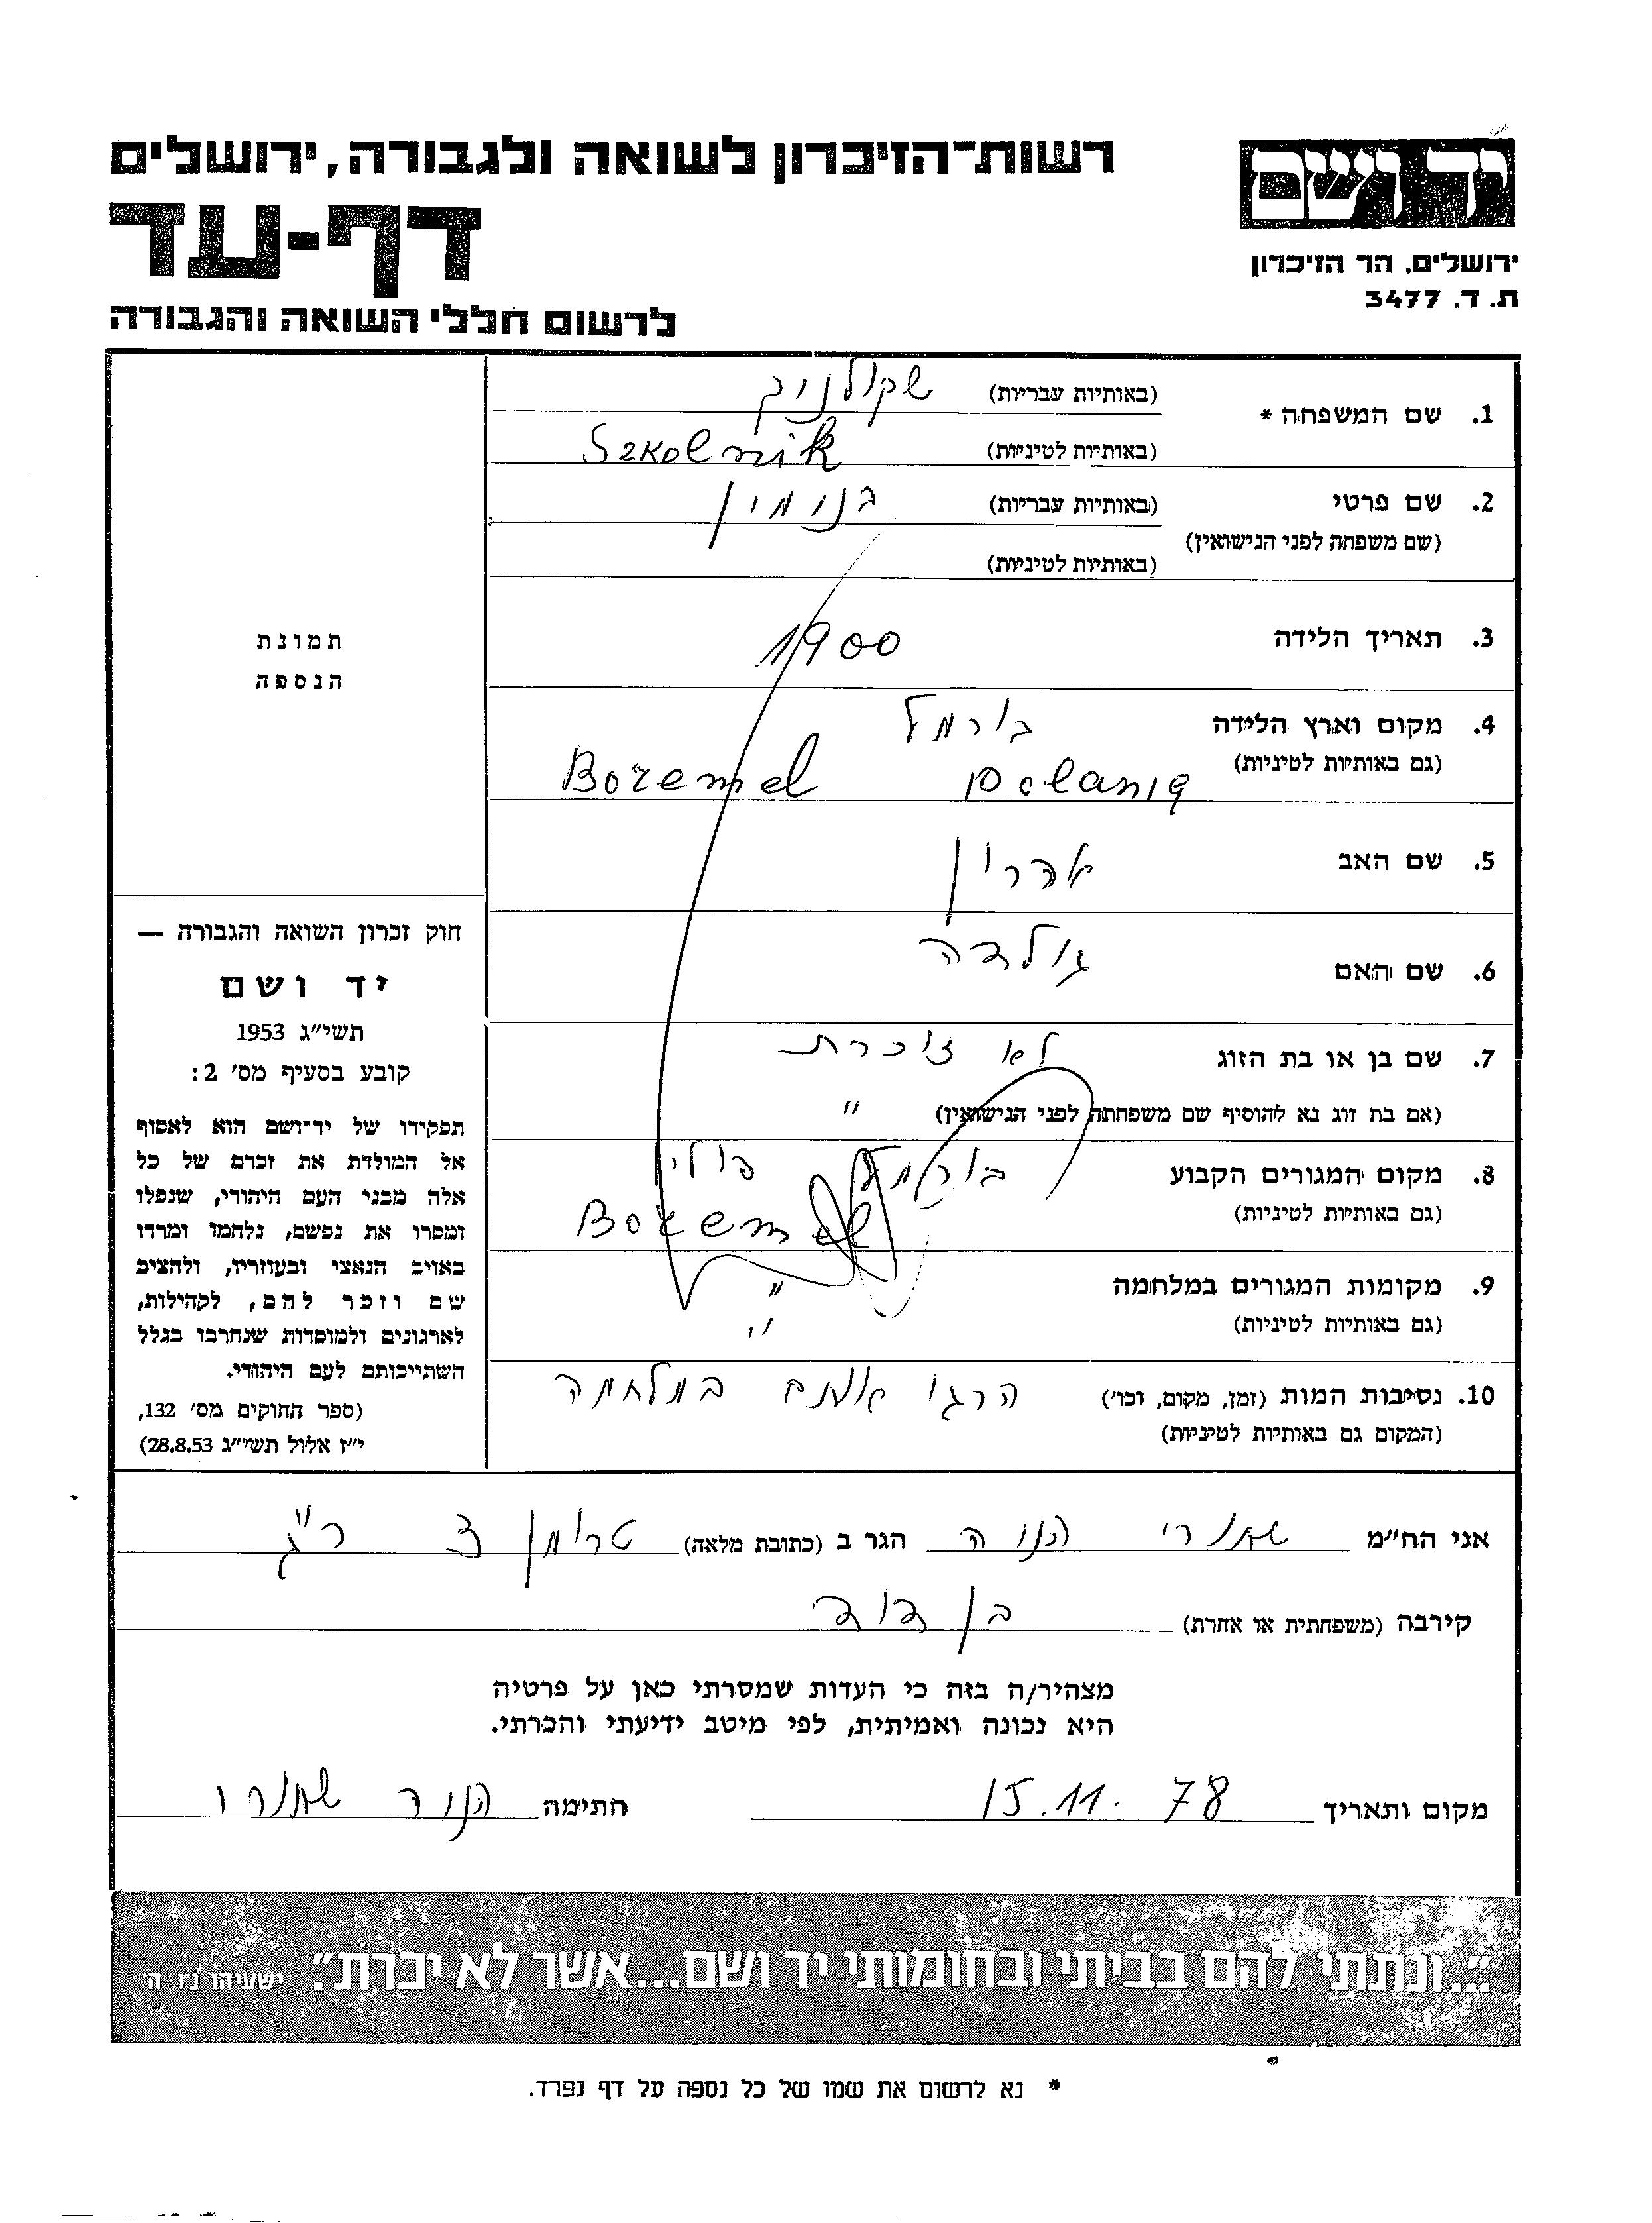 רשות־הזיכרון לשואה ולגבורה, ירושלים
יד ושם
דף-עד
ירושלים, הר הזיכרון
ת. ד. 3477
לרשום חללי השואה והגבורה
1. שם המשפחה * (באותיות עבריות) שקולניק
(באותיות לטיניות) Szkolnik
2. שם פרטי (באותיות עבריות) בנימין
(שם משפחה לפני הנישואין)
(באותיות לטיניות)
3. תאריך הלידה 1900
4. מקום וארץ הלידה בורמל
(גם באותיות לטיניות) Boremel polania
5. שם האב אהרון
6. שם האם גולדה
7. שם בן או בת הזוג לא זוכרת
(אם בת זוג נא להוסיף שם משפחתה לפני הנישואין) "
8. מקום המגורים הקבוע בורמל פולין
(גם באותיות לטיניות) Boremel
9. מקומות המגורים במלחמה "
(גם באותיות לטיניות) "
10. נסיבות המות (זמן, מקום, וכו') הרגו אותם במלחמה
(המקום גם באותיות לטיניות)
תמונת
הנספה
חוק זכרון השואה והגבורה —
יד ושם
תשי"ג 1953
קובע בסעיף מס' 2:
תפקידו של יד־ושם הוא לאסוף
אל המולדת את זכרם של כל
אלה מבני העם היהודי, שנפלו
ומסרו את נפשם, נלחמו ומרדו
באויב הנאצי ובעוזריו, ולהציב
שם וזכר להם, לקהילות,
לארגונים ולמוסדות שנחרבו בגלל
השתייכותם לעם היהודי.
(ספר החוקים מס' 132,
י"ז אלול תשי"ג 28.8.53)
אני הח"מ הגר ב (כתובת מלאה) טרומן 3 ר"ג
קירבה (משפחתית או אחרת) בן דוד
מצהיר/ה בזה כי העדות שמסרתי כאן על פרטיה
היא נכונה ואמיתית, לפי מיטב ידיעתי והכרתי.
מקום ותאריך 15.11.78 חתימה
"...ונתתי להם בביתי ובחומותי יד ושם...אשר לא יכרת". ישעיהו נו, ה'
* נא לרשום את שמו של כל נספה על דף נפרד.